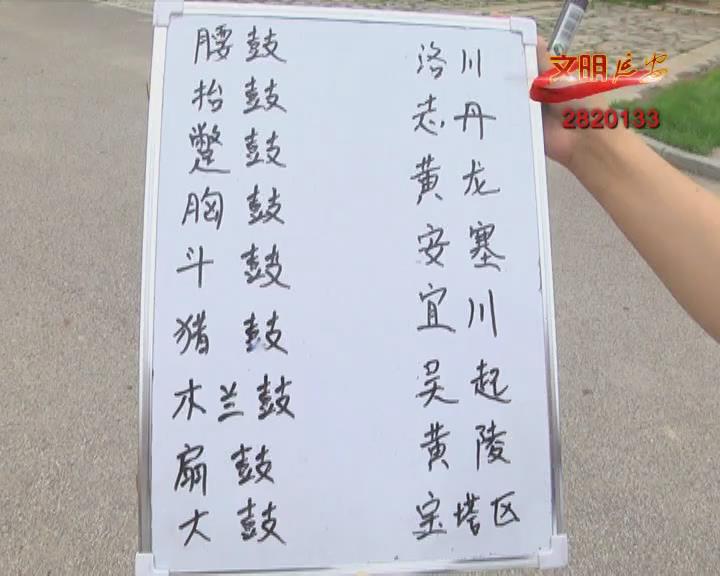 腰鼓
抬鼓
蹩鼓
胸鼓
斗鼓
猎鼓
木兰鼓
扇鼓
大鼓
洛川
志丹
黄龙
安塞
宜川
吴起
黄陵
宝塔区
文明延安
2820133